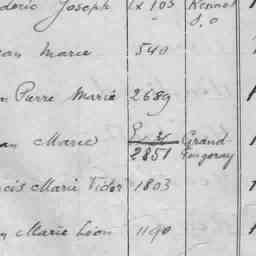 deric Joseph 1x105 Rennes
an Marie 540
n Pierre Marie 2689
an Marie 2851 Grand
Fougeray
ncis Marie Victor 1803
n Marie Léon 1190